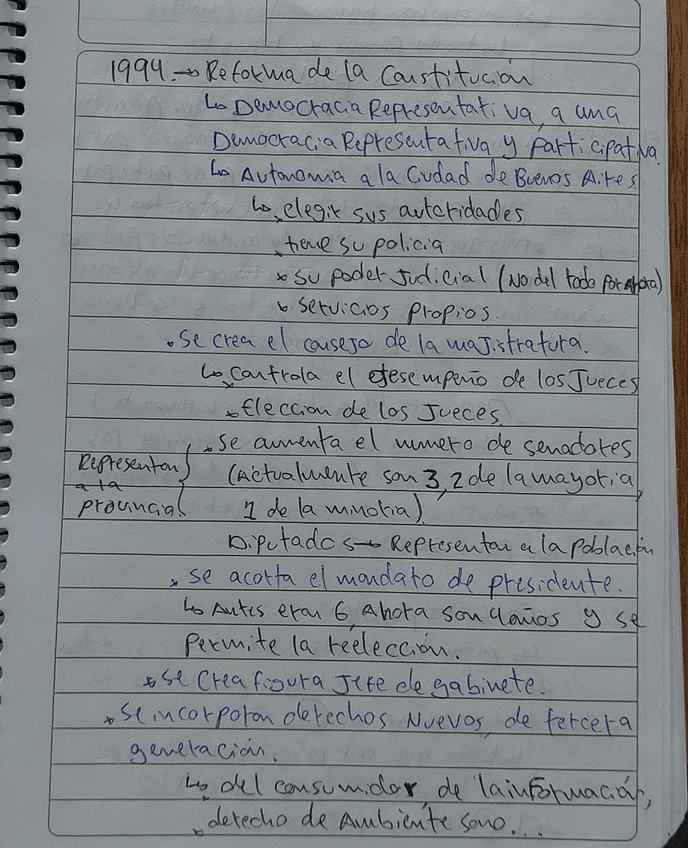 1994 → Reforma de la Constitución
↳ Democracia Representativa, a una
Democracia Representativa y participativa.
↳ Autonomia a la Ciudad de Buenos Aires
↳ . elegir sus autoridades
. tiene su policia
* su poder Judicial (No del todo por ahora)
* servicios propios.
. Se crea el consejo de la majistratura.
↳ Controla el desempeño de los Jueces
* Eleccion de los Jueces.
. Se aumenta el numero de senadores
Representan a la provincia { (Actualmente son 3, 2 de la mayoria,
1 de la minoria)
Diputados → Representan a la población
* se acorta el mandato de presidente.
↳ Antes eran 6, Ahora son 4 años y se
permite la reelección.
* se Crea figura Jefe de gabinete.
* Se incorporan derechos Nuevos, de tercera
generación.
↳ . del consumidor, de la información,
. derecho de Ambiente sano...